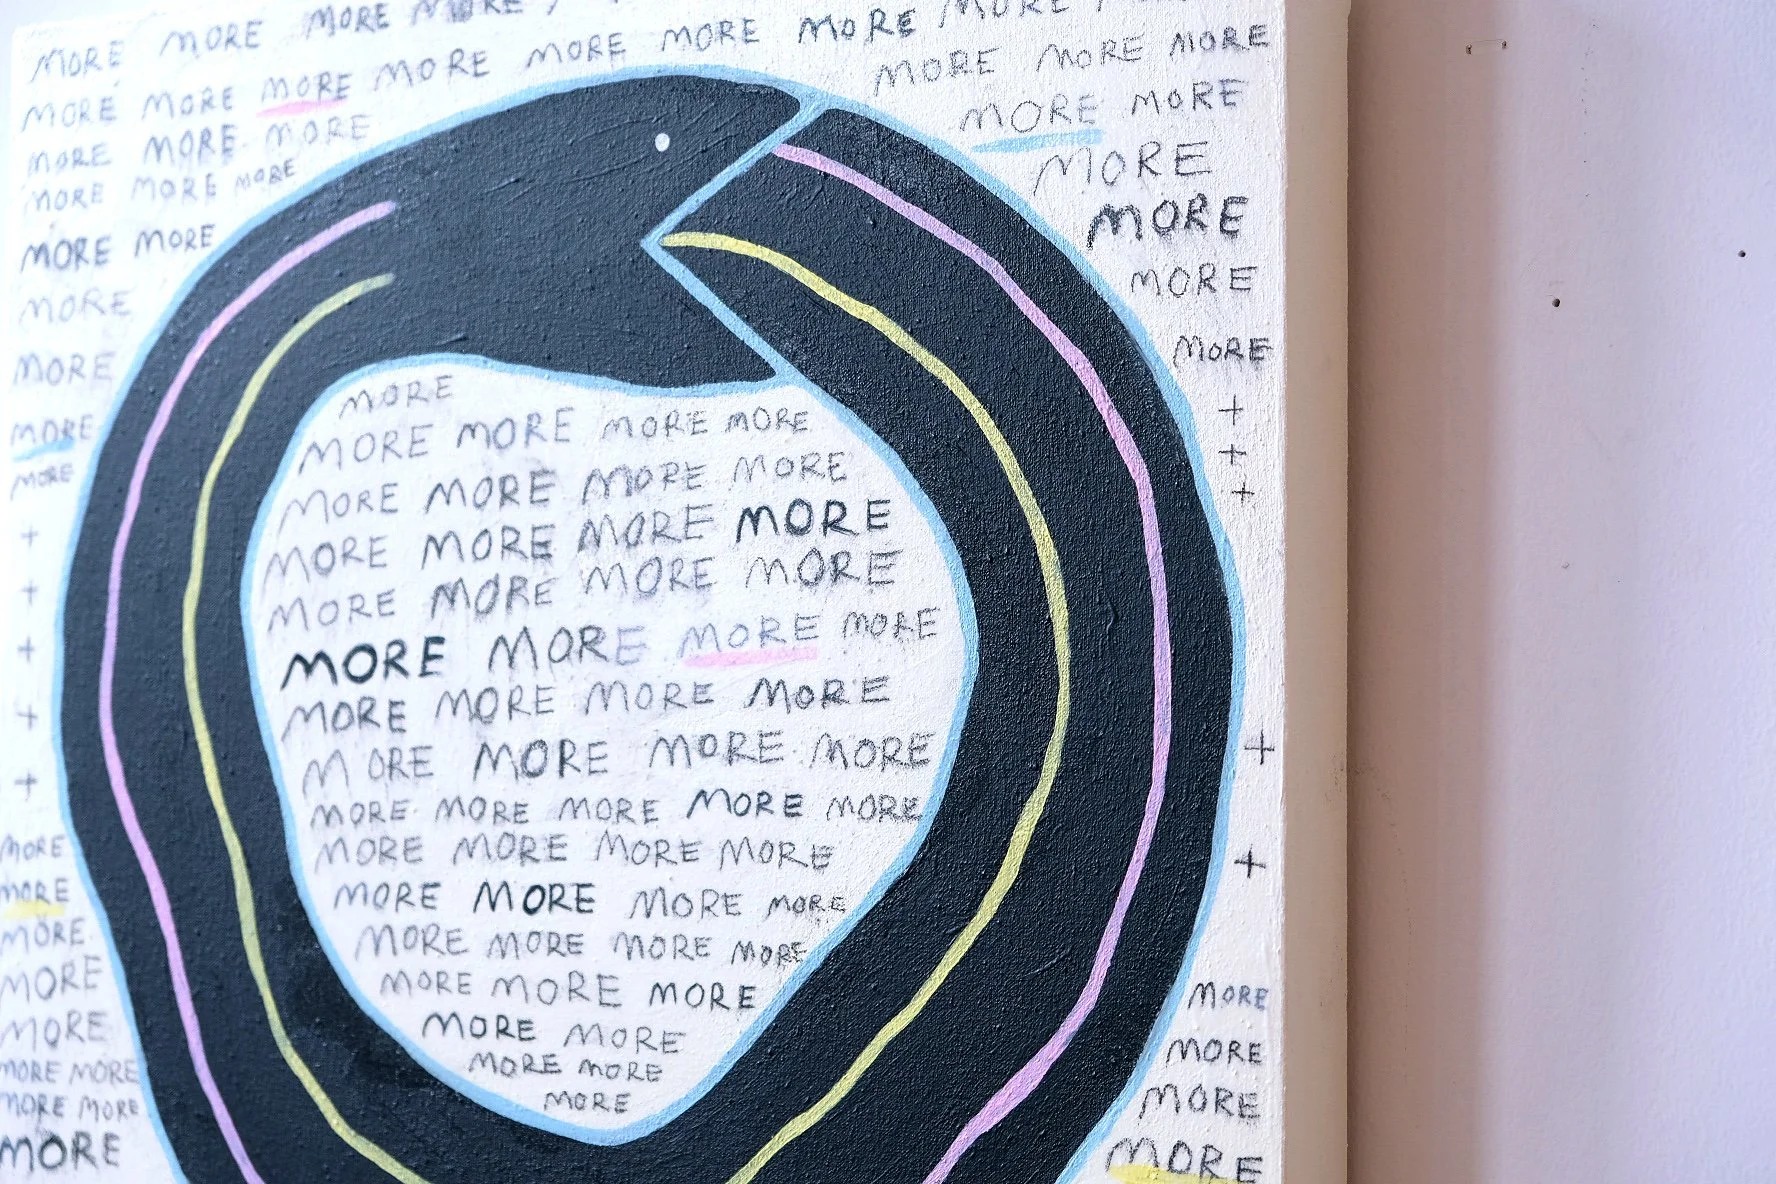 MORE MORE MORE MORE MORE
MORE MORE MORE MORE MORE MORE MORE
MORE MORE MORE MORE MORE MORE
MORE MORE MORE MORE MORE
MORE MORE MORE MORE
MORE MORE MORE
MORE MORE
MORE MORE
MORE MORE
MORE
MORE
MORE MORE MORE MORE
MORE MORE MORE MORE
+
MORE MORE MORE MORE
+
MORE MORE MORE MORE
+
MORE MORE MORE MORE
+
MORE MORE MORE MORE
+
MORE MORE MORE MORE
+
MORE MORE MORE MORE MORE
+
MORE MORE MORE MORE
+
MORE MORE MORE MORE
+
MORE MORE MORE MORE MORE
MORE MORE MORE MORE MORE
MORE MORE MORE MORE
MORE MORE MORE
MORE MORE MORE MORE
MORE MORE MORE MORE
MORE MORE